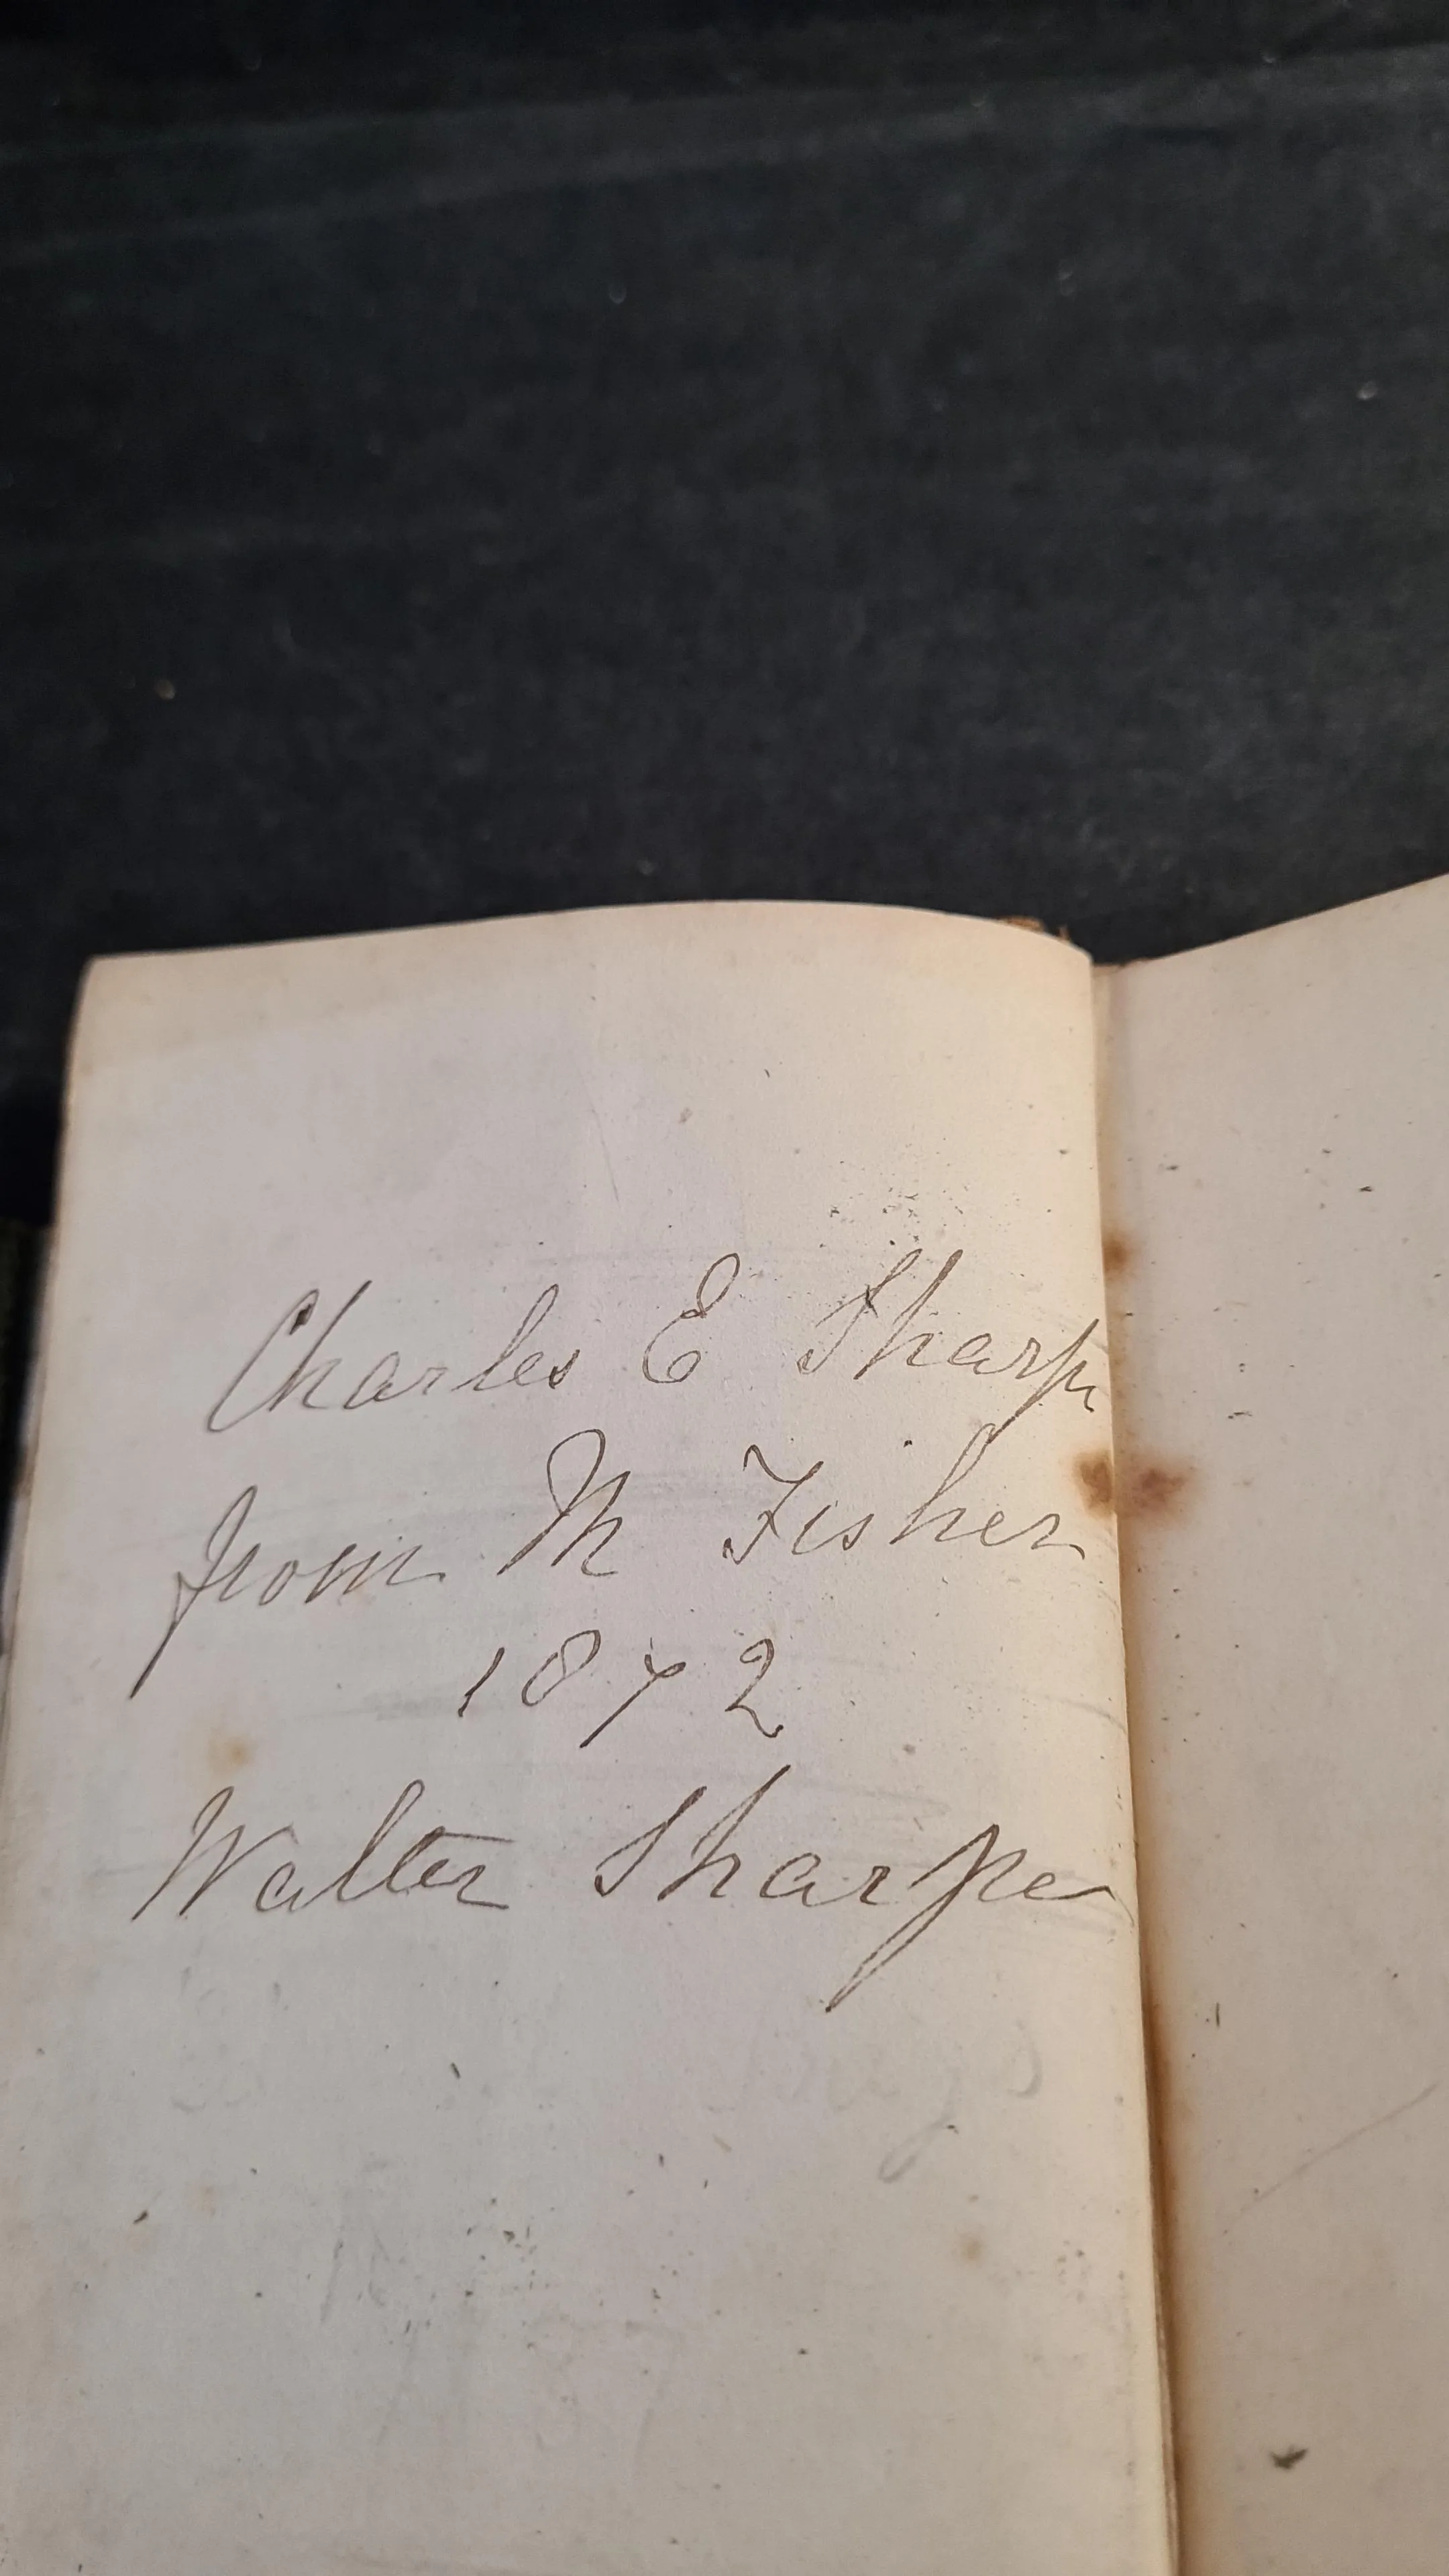 Charles E Sharpe
from M Fisher
1872
Walter Sharpe